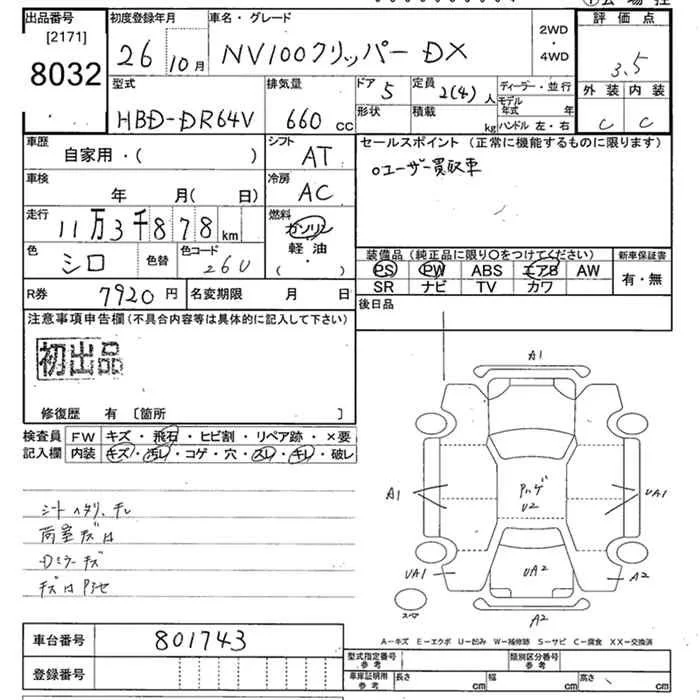 出品番号
[2171]
8032
初度登録年月
26 10月
車名・グレード
NV100クリッパー DX
2WD
・
4WD
評価点
3.5
型式
HBD-DR64V
排気量
660 cc
ドア 5
形状
定員 2(4)人
積載 kg
ディーラー・並行
モデル年式 年
ハンドル 左・右
外装 内装
C C
車歴
自家用・( )
シフト
AT
車検
年 月( 日)
冷房
AC
走行
11万3千878km
燃料
ガソリン
軽油
( ・ )
色
シロ
色替
色コード
26U
セールスポイント(正常に機能するものに限ります)
oユーザー買取車
装備品(純正品に限り○をつけてください)
PS PW ABS エアB AW
SR ナビ TV カワ
新車保証書
有・無
R券 7920円
名変期限 月 日
後日品
注意事項申告欄(不具合内容等は具体的に記入して下さい)
初出品
修復歴 有〔箇所 〕
検査員記入欄
FW キズ・飛石・ヒビ割・リペア跡・×要
内装 キズ・汚レ・コゲ・穴・スレ・キレ・破レ
A1
A1
UA1
U2
UA1
UA2
A2
A2
A-キズ E-エクボ U-凹み W-補修跡 S-サビ C-腐食 XX-交換済
車台番号 801743
登録番号
型式指定番号 参考
類別区分番号 参考
車庫証明用 参考
長さ cm
幅 cm
高さ cm